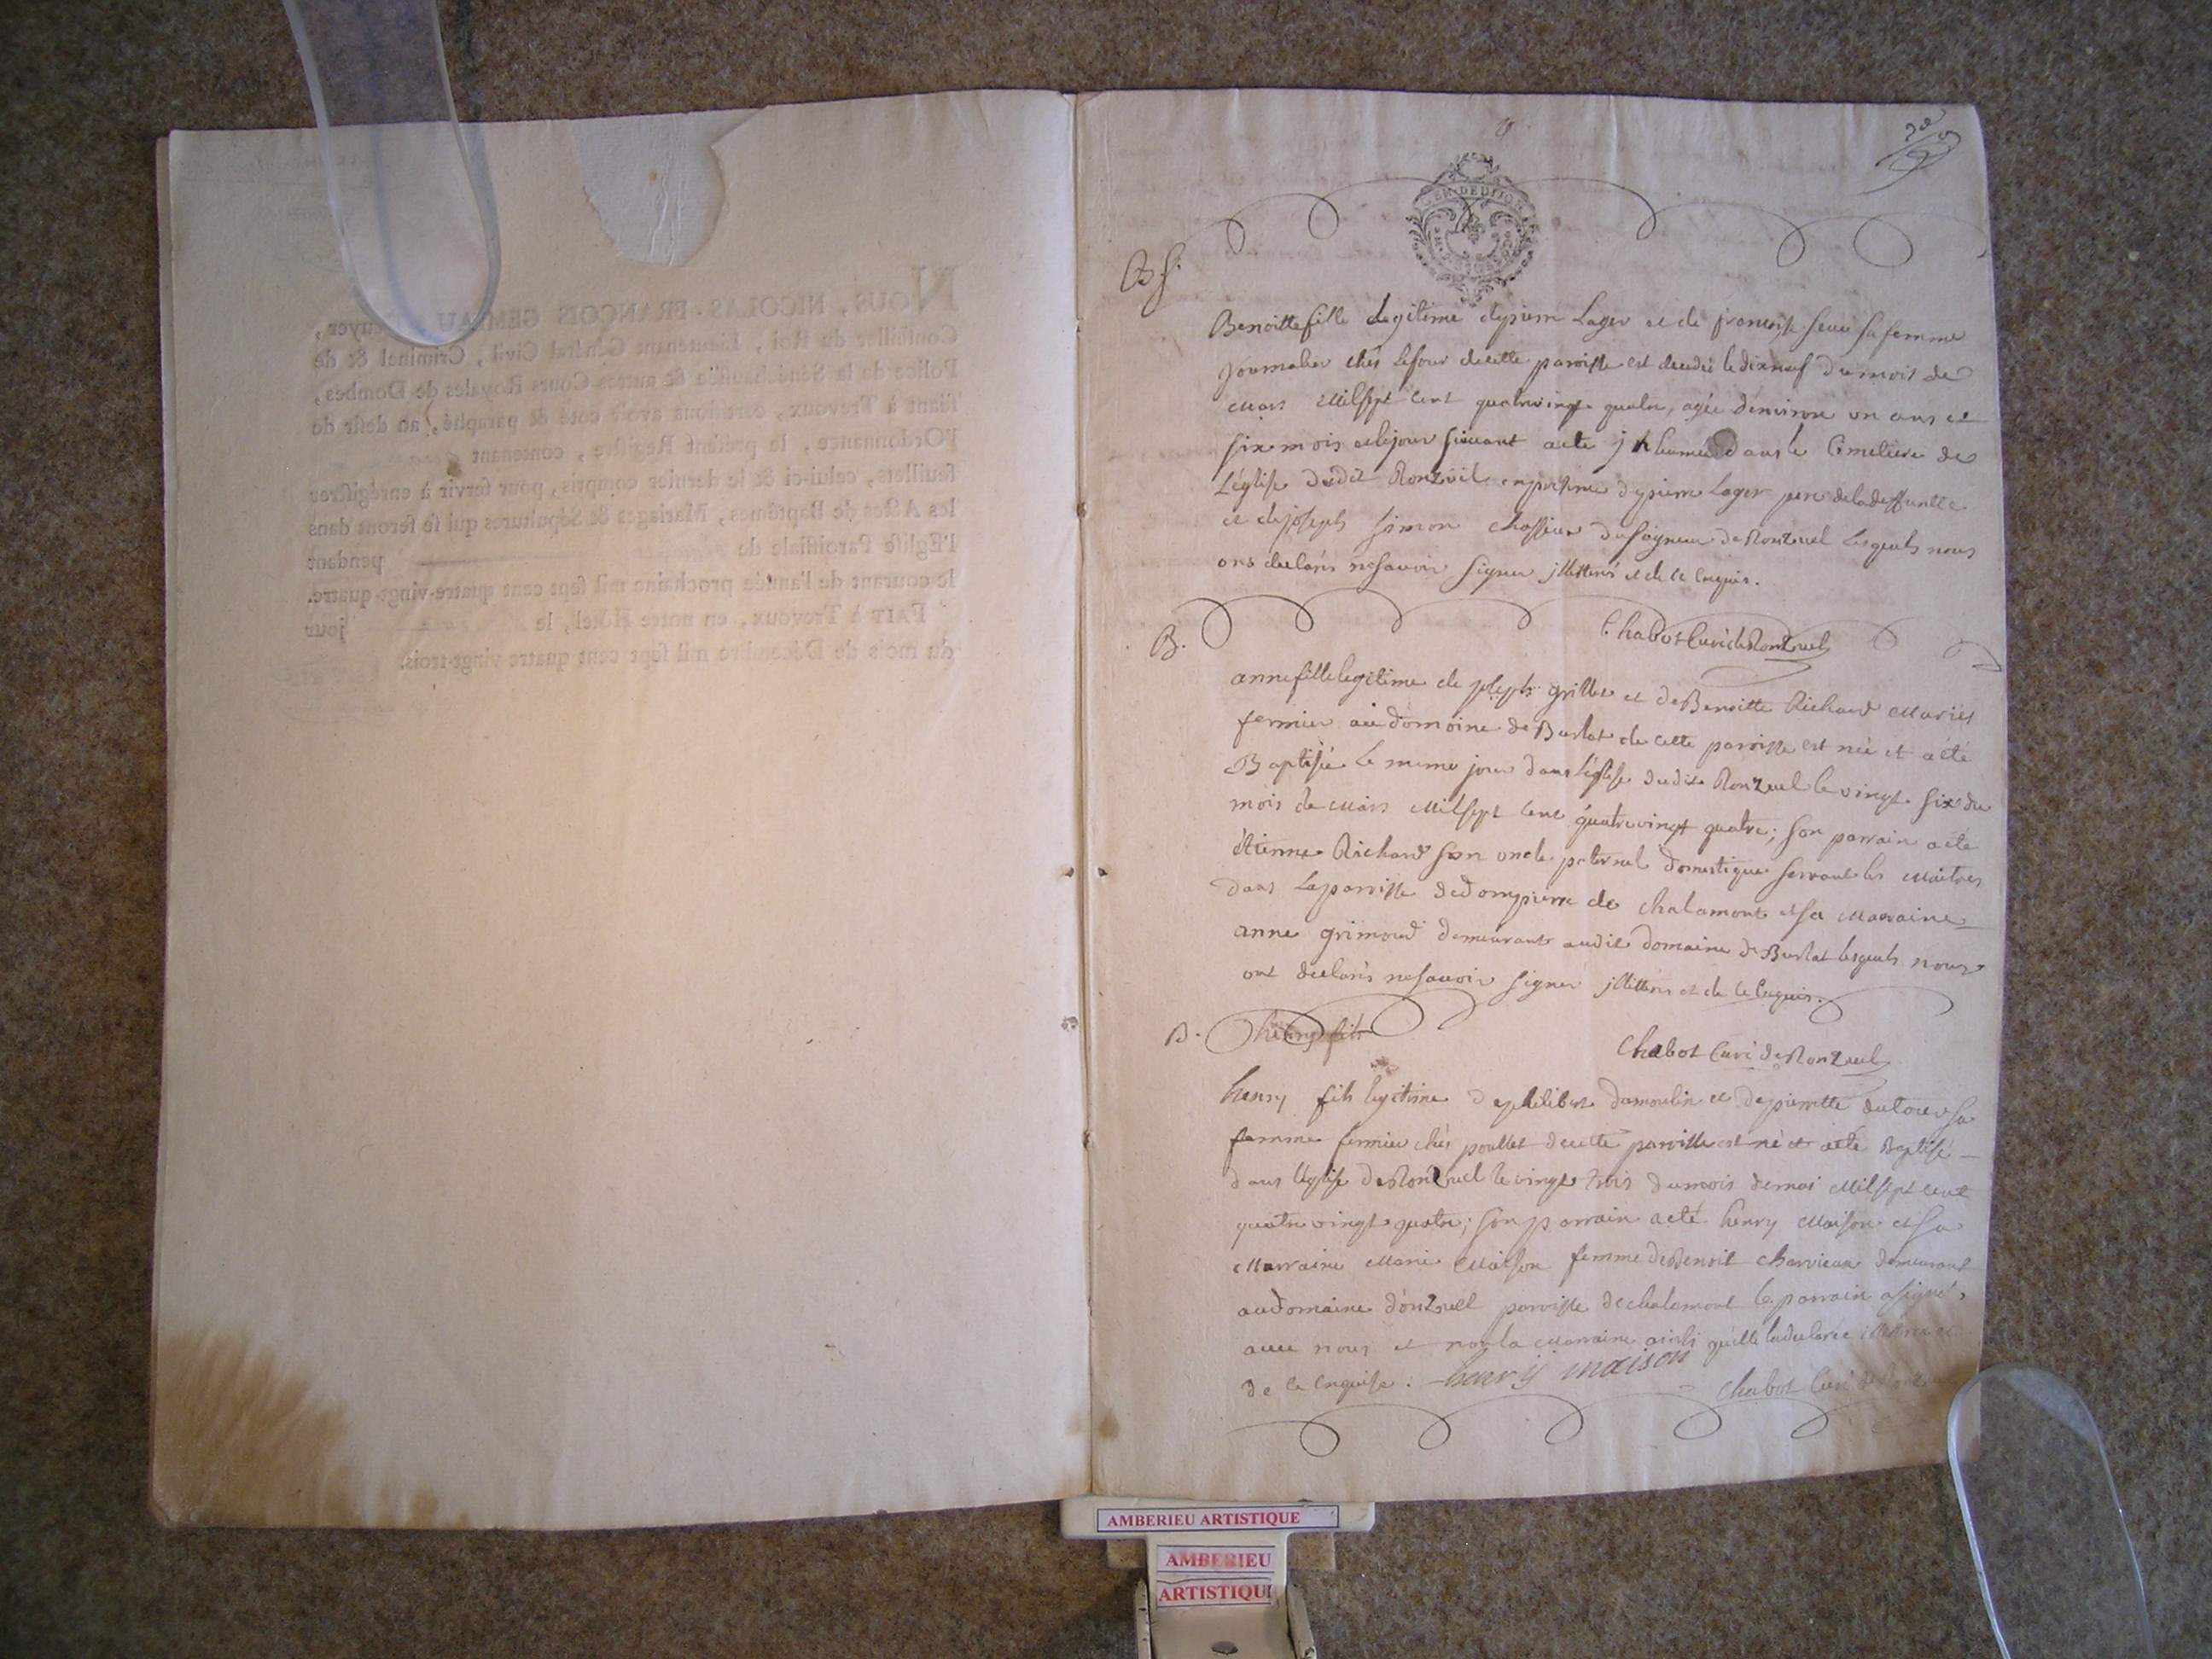 NOUS, NICOLAS-FRANÇOIS GEMEAU, Ecuyer,
Conseiller du Roi, Lieutenant Général Civil, Criminel & de
Police de la Sénéchaussée & autres Cours Royales de Dombes,
séant à Trevoux, certifions avoir coté & paraphé, au desir de
l'Ordonnance, le présent Registre, contenant
feuillets, celui-ci & le dernier compris, pour servir à enrégistrer
les Actes de Baptêmes, Mariages & Sépultures qui se feront dans
l'Eglise Paroissiale de pendant
le courant de l'année prochaine mil sept cent quatre-vingt-quatre.
FAIT à Trevoux, en notre Hôtel, le jour
du mois de Décembre mil sept cent quatre vingt-trois.
GEN DE DIJON
Benoitte fille legitime de pierre Lager et de françoise sa femme
journalier chés lefour de cette paroisse est decedée le dixneuf du mois de
Mars Milsept cent quatrevingt quatre, agée d'environ un ans et
six mois et le jour suivant a eté jnhumée dans le Cimetiere de
L'église dudit Ronzüel en presence de pierre Lager pere de la deffuncte
et de joseph Simon chasseur du seigneur de Ronzuel lesquels nous
ons declarés ne savoir signer jllitterés et de ce enquis.
Chabot Curé de Ronzuel
B.
anne fille legitime de joseph grillet et de Benoitte Richard Mariés
fermier au domaine de Burlat de cette paroisse est née et a été
Baptisée le meme jour dans l'église dudit Ronzuel le vingt six du
mois de Mars Milsept cent quatrevingt quatre; son parrain a eté
étienne Richard son oncle paternel domestique servant les Maitres
dans la paroisse de dompierre de chalamont et sa Marraine
anne grimoud demeurant audit domaine de Burlat lesquels nous
ont declarés ne savoir signer jllitterés et de ce enquis.
Chabot Curé de Ronzuel
B. henry fils
henry fils legitime de philibert dumoulin et de pierrette dutour sa
femme fermier chés poullet de cette paroisse est né et a eté Baptisé
dans l'église de Ronzuel le vingt trois du mois de mai Milsept cent
quatre vingt quatre; son parrain a eté henry Maison et sa
Marraine Marie Maison femme de Benoit charvieux demeurant
au domaine d'onzuel paroisse de chalamont le parrain a signé,
avec nous et non la Marraine ainsi qu'elle la declarée
de ce enquise. henry maison
Chabot Curé de Ronzuel
AMBERIEU ARTISTIQUE
AMBERIEU
ARTISTIQU